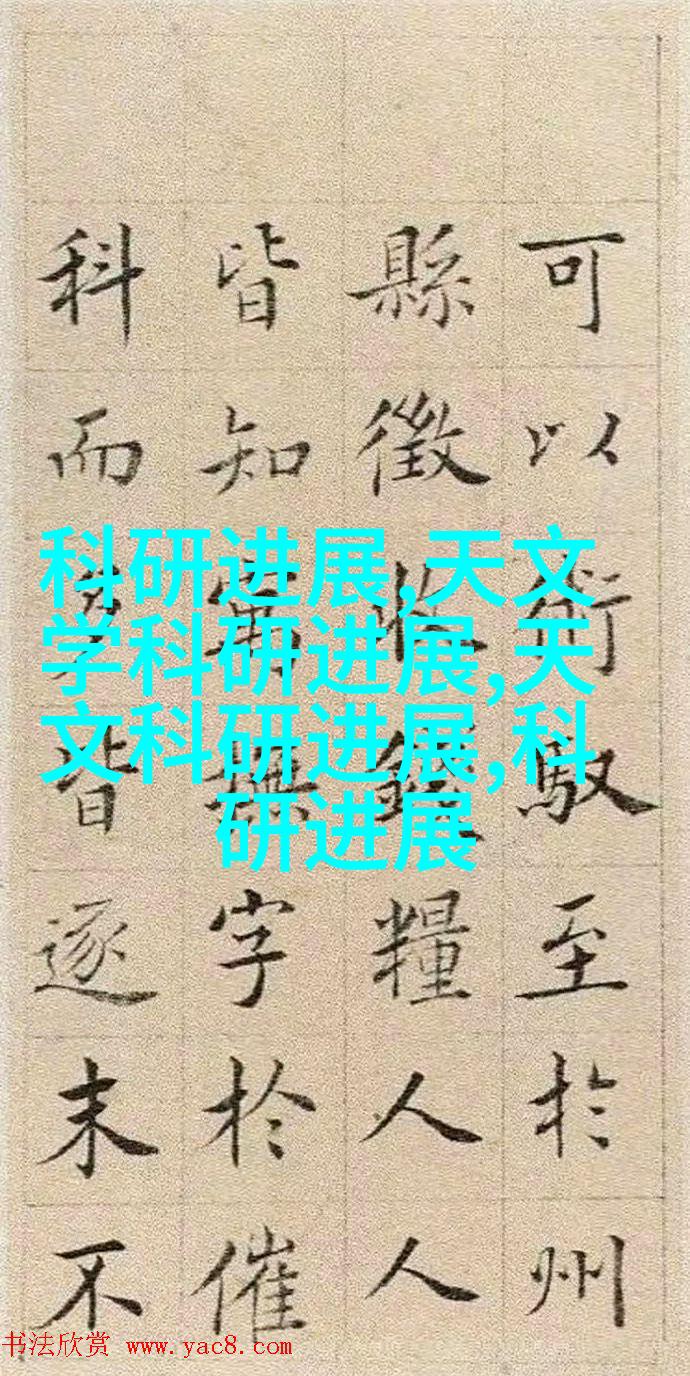 可以術馭至於州
縣徵收錢糧人人
皆知寓撫字於催
科而皆逐末不
科研进展,天文
学科研进展,天
文科研进展,科
研进展
书法欣赏 www.yac8.com